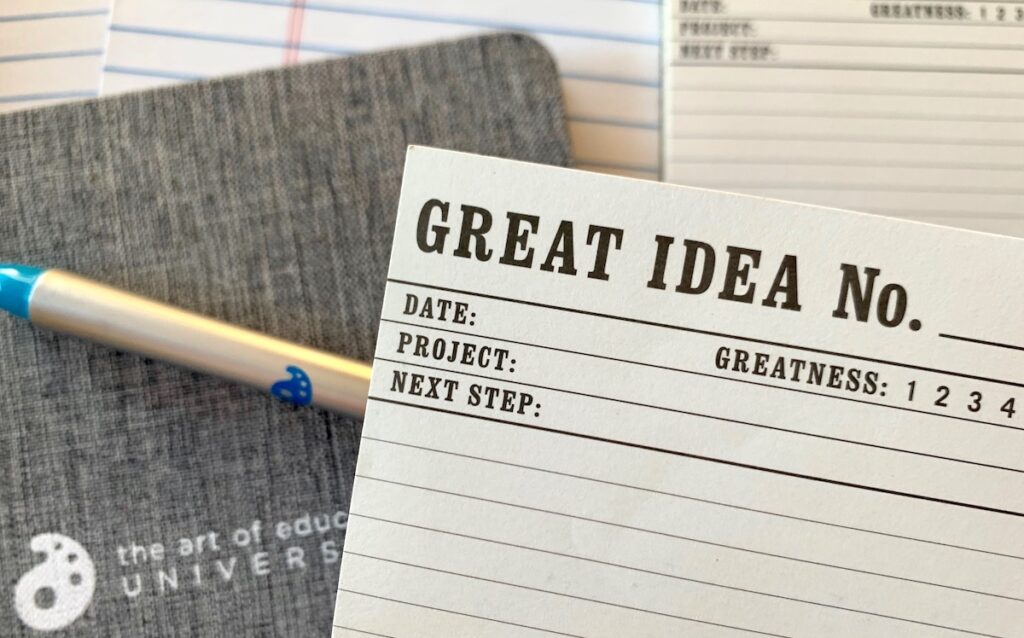 DATE:
GREATNESS: 1 2 3
PROJECT:
NEXT STEP:
GREAT IDEA No.
DATE:
PROJECT:
GREATNESS: 1 2 3 4
NEXT STEP:
the art of educ
UNIVERS